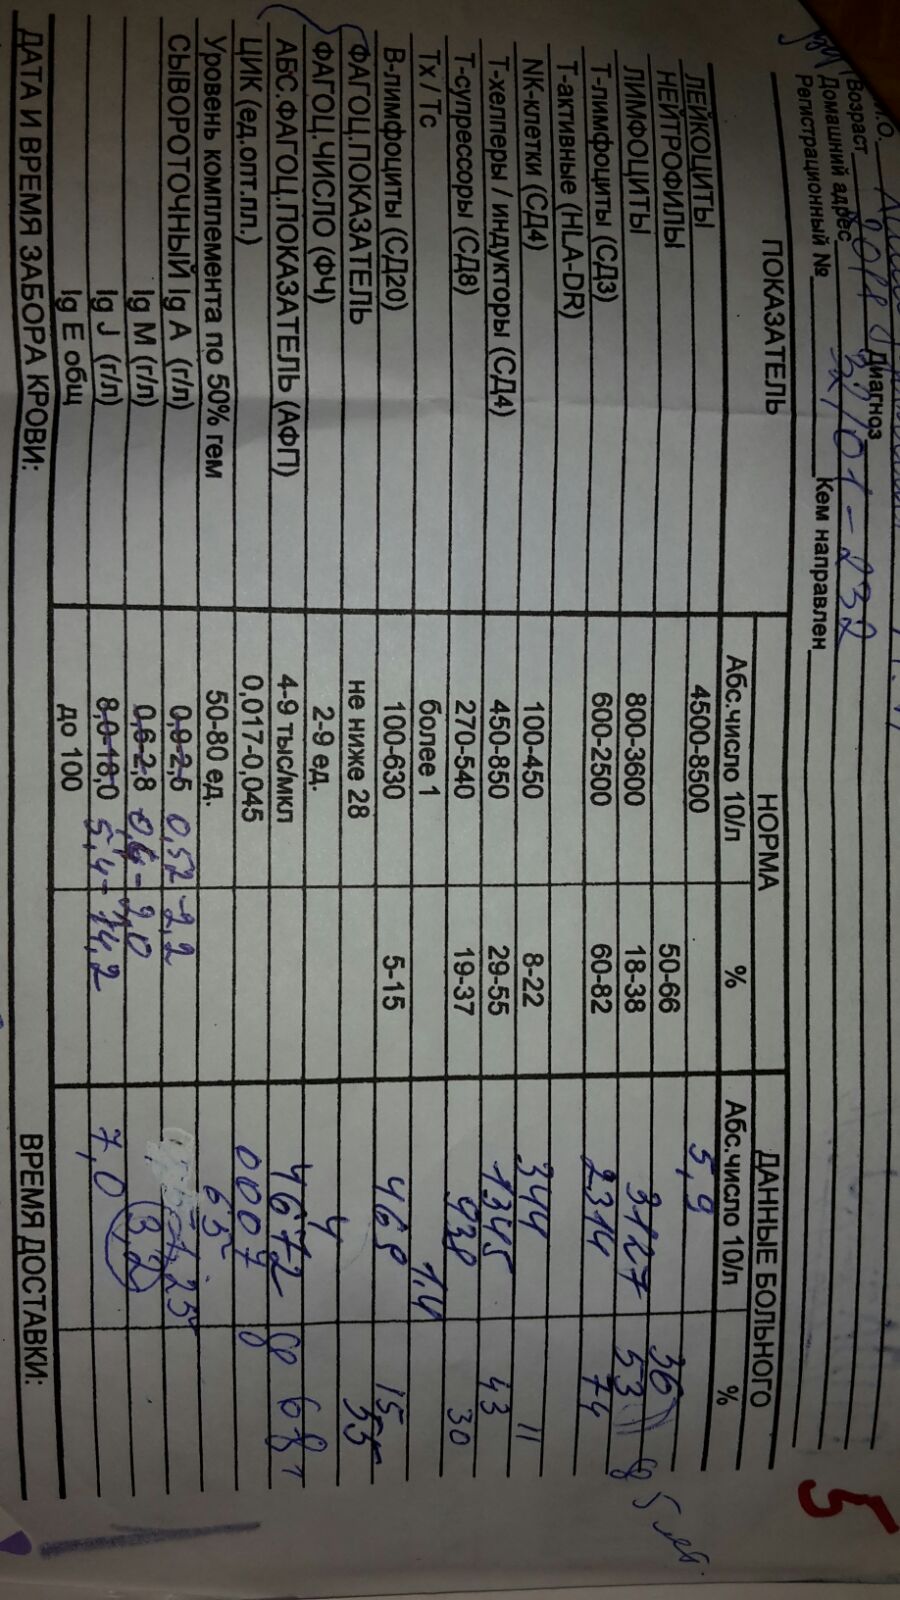 И.О.
Возраст 2011 Диагноз
Домашний адрес 32/01-232
Регистрационный № Кем направлен
5
ПОКАЗАТЕЛЬ НОРМА ДАННЫЕ БОЛЬНОГО
Абс.число 10/л % Абс.число 10/л %
ЛЕЙКОЦИТЫ 4500-8500 5,9
НЕЙТРОФИЛЫ 50-66 36
ЛИМФОЦИТЫ 800-3600 18-38 3127 53 5 лет.
Т-лимфоциты (СД3) 600-2500 60-82 2314 74
Т-активные (HLA-DR)
NK-клетки (СД4) 100-450 8-22 344 11
Т-хелперы / индукторы (СД4) 450-850 29-55 1345 43
Т-супрессоры (СД8) 270-540 19-37 938 30
Тх / Тс более 1 1.4
В-лимфоциты (СД20) 100-630 5-15 469 15
ФАГОЦ.ПОКАЗАТЕЛЬ не ниже 28 55
ФАГОЦ.ЧИСЛО (ФЧ) 2-9 ед. 4
АБС.ФАГОЦ.ПОКАЗАТЕЛЬ (АФП) 4-9 тыс/мкл 4672
ЦИК (ед.опт.пл.) 0,017-0,045 0007
Уровень комплемента по 50% гем 50-80 ед. 65
СЫВОРОТОЧНЫЙ Ig A (г/л) 0,9-2,5 0,52-2,2 1,25
Ig M (г/л) 0,6-2,8 0,4-2,0 3,2
Ig J (г/л) 8,0-18,0 5,4-14,2 7,0
Ig E общ до 100
ДАТА И ВРЕМЯ ЗАБОРА КРОВИ: ВРЕМЯ ДОСТАВКИ: